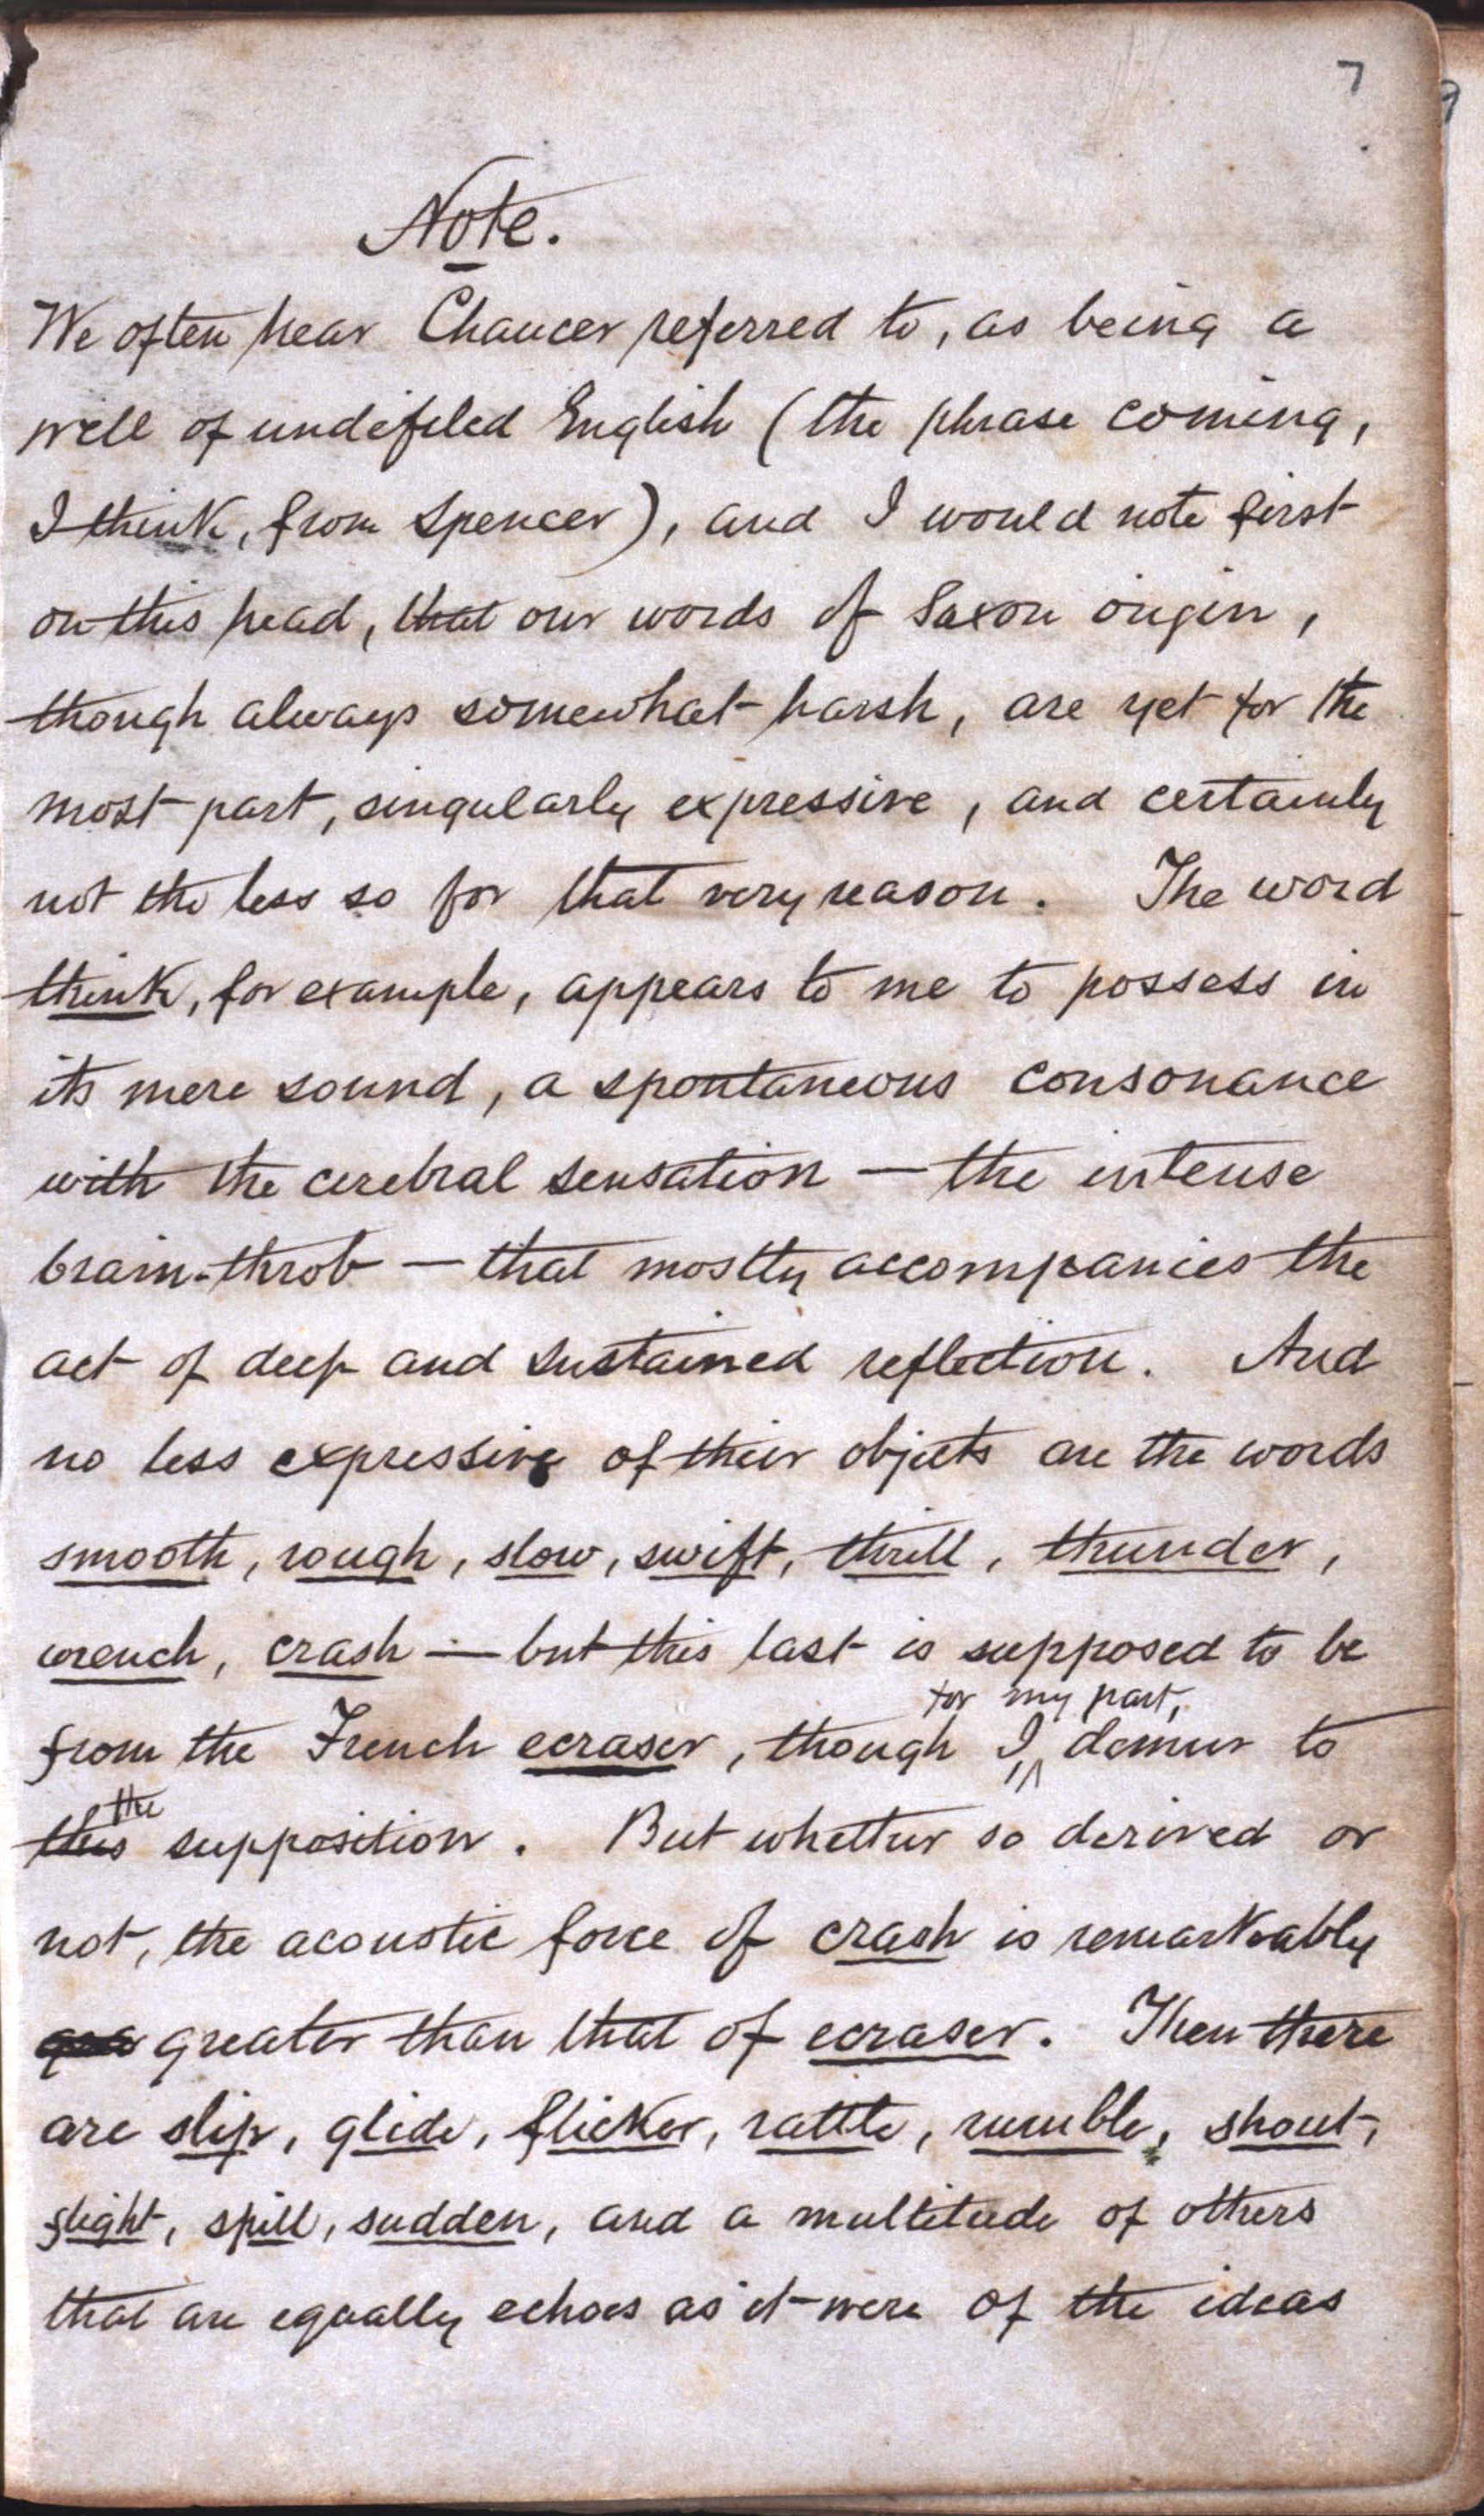 7
Note.
We often hear Chaucer referred to, as being a
well of undefiled English (the phrase coming,
I think, from Spencer), and I would note first
on this head, that our words of Saxon origin,
though always somewhat harsh, are yet for the
most part, singularly expressive, and certainly
not the less so for that very reason. The word
think, for example, appears to me to possess in
its mere sound, a spontaneous consonance
with the cerebral sensation — the intense
brain-throb — that mostly accompanies the
act of deep and sustained reflection. And
no less expressive of their objects are the words
smooth, rough, slow, swift, thrill, thunder,
wrench, crash — but this last is supposed to be
for my part,
from the French ecraser, though I demur to
the
this supposition. But whether so derived or
not, the acoustic force of crash is remarkably
greater than that of ecraser. Then there
are slip, glide, flicker, rattle, rumble, shout,
slight, spill, sudden, and a multitude of others
that are equally echoes as it were of the ideas